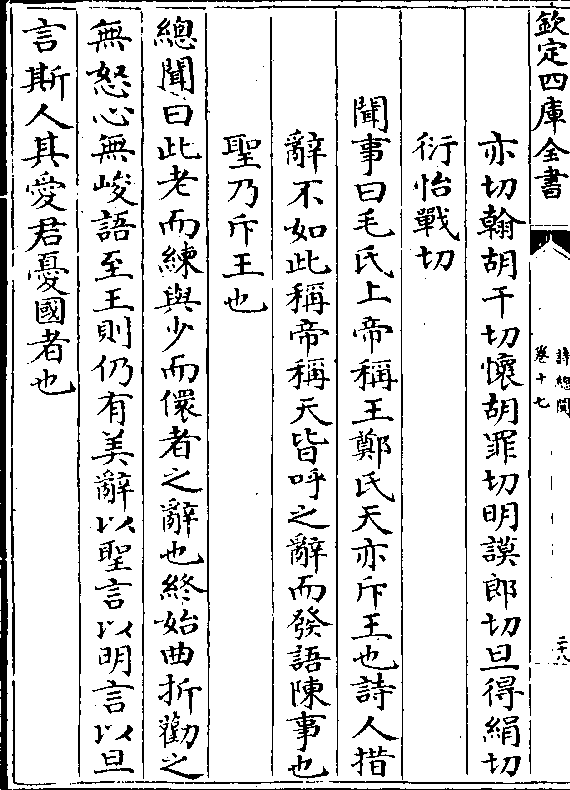 欽定四庫全書
詩總聞
卷十七
二十八
亦切翰胡干切懷胡罪切明謨郎切旦得絹切
衍怡戰切
聞事曰毛氏上帝稱王鄭氏天亦斥王也詩人措
辭不如此稱帝稱天皆呼之辭而發語陳事也
聖乃斥王也
總聞曰此老而練與少而儇者之辭也終始曲折勸之
無怒心無峻語至王則仍有美辭以聖言以明言以旦
言斯人其愛君憂國者也